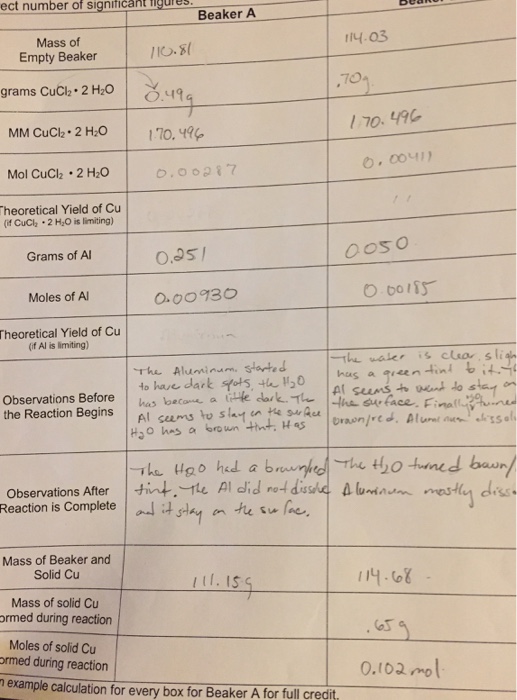 ect number of significant figures.
Beaker A
Mass of
Empty Beaker
110.81
114.03
grams CuCl2 • 2 H2O
0.49g
.70g
MM CuCl2 • 2 H2O
170.496
170.496
Mol CuCl2 • 2 H2O
0.00287
0.00411
Theoretical Yield of Cu
(if CuCl2 • 2 H2O is limiting)
Grams of Al
0.251
0.050
Moles of Al
0.00930
0.00185
Theoretical Yield of Cu
(if Al is limiting)
Observations Before
the Reaction Begins
The Aluminum started
to have dark spots, the H2O
has become a little dark. The
Al seems to stay on the surface
H2O has a brown tint. Has
The water is clear, sligh
has a green tint to it
Al seems to to stay on
the surface. Finally turned
brown/red. Aluminum dissol
Observations After
Reaction is Complete
The H2O had a brown/red
tint. The Al did not dissolve
and it stay on the surface.
The H2O turned brown/
Aluminum mostly disso
Mass of Beaker and
Solid Cu
111.15g
114.68
Mass of solid Cu
ormed during reaction
.65g
Moles of solid Cu
ormed during reaction
0.102 mol
n example calculation for every box for Beaker A for full credit.